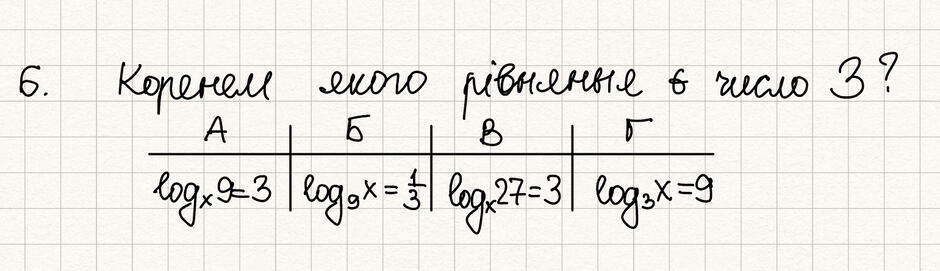 6. Коренем якого рівняння є число 3?
А Б В Г
logₓ9=3 log₉x=1/3 logₓ27=3 log₃x=9